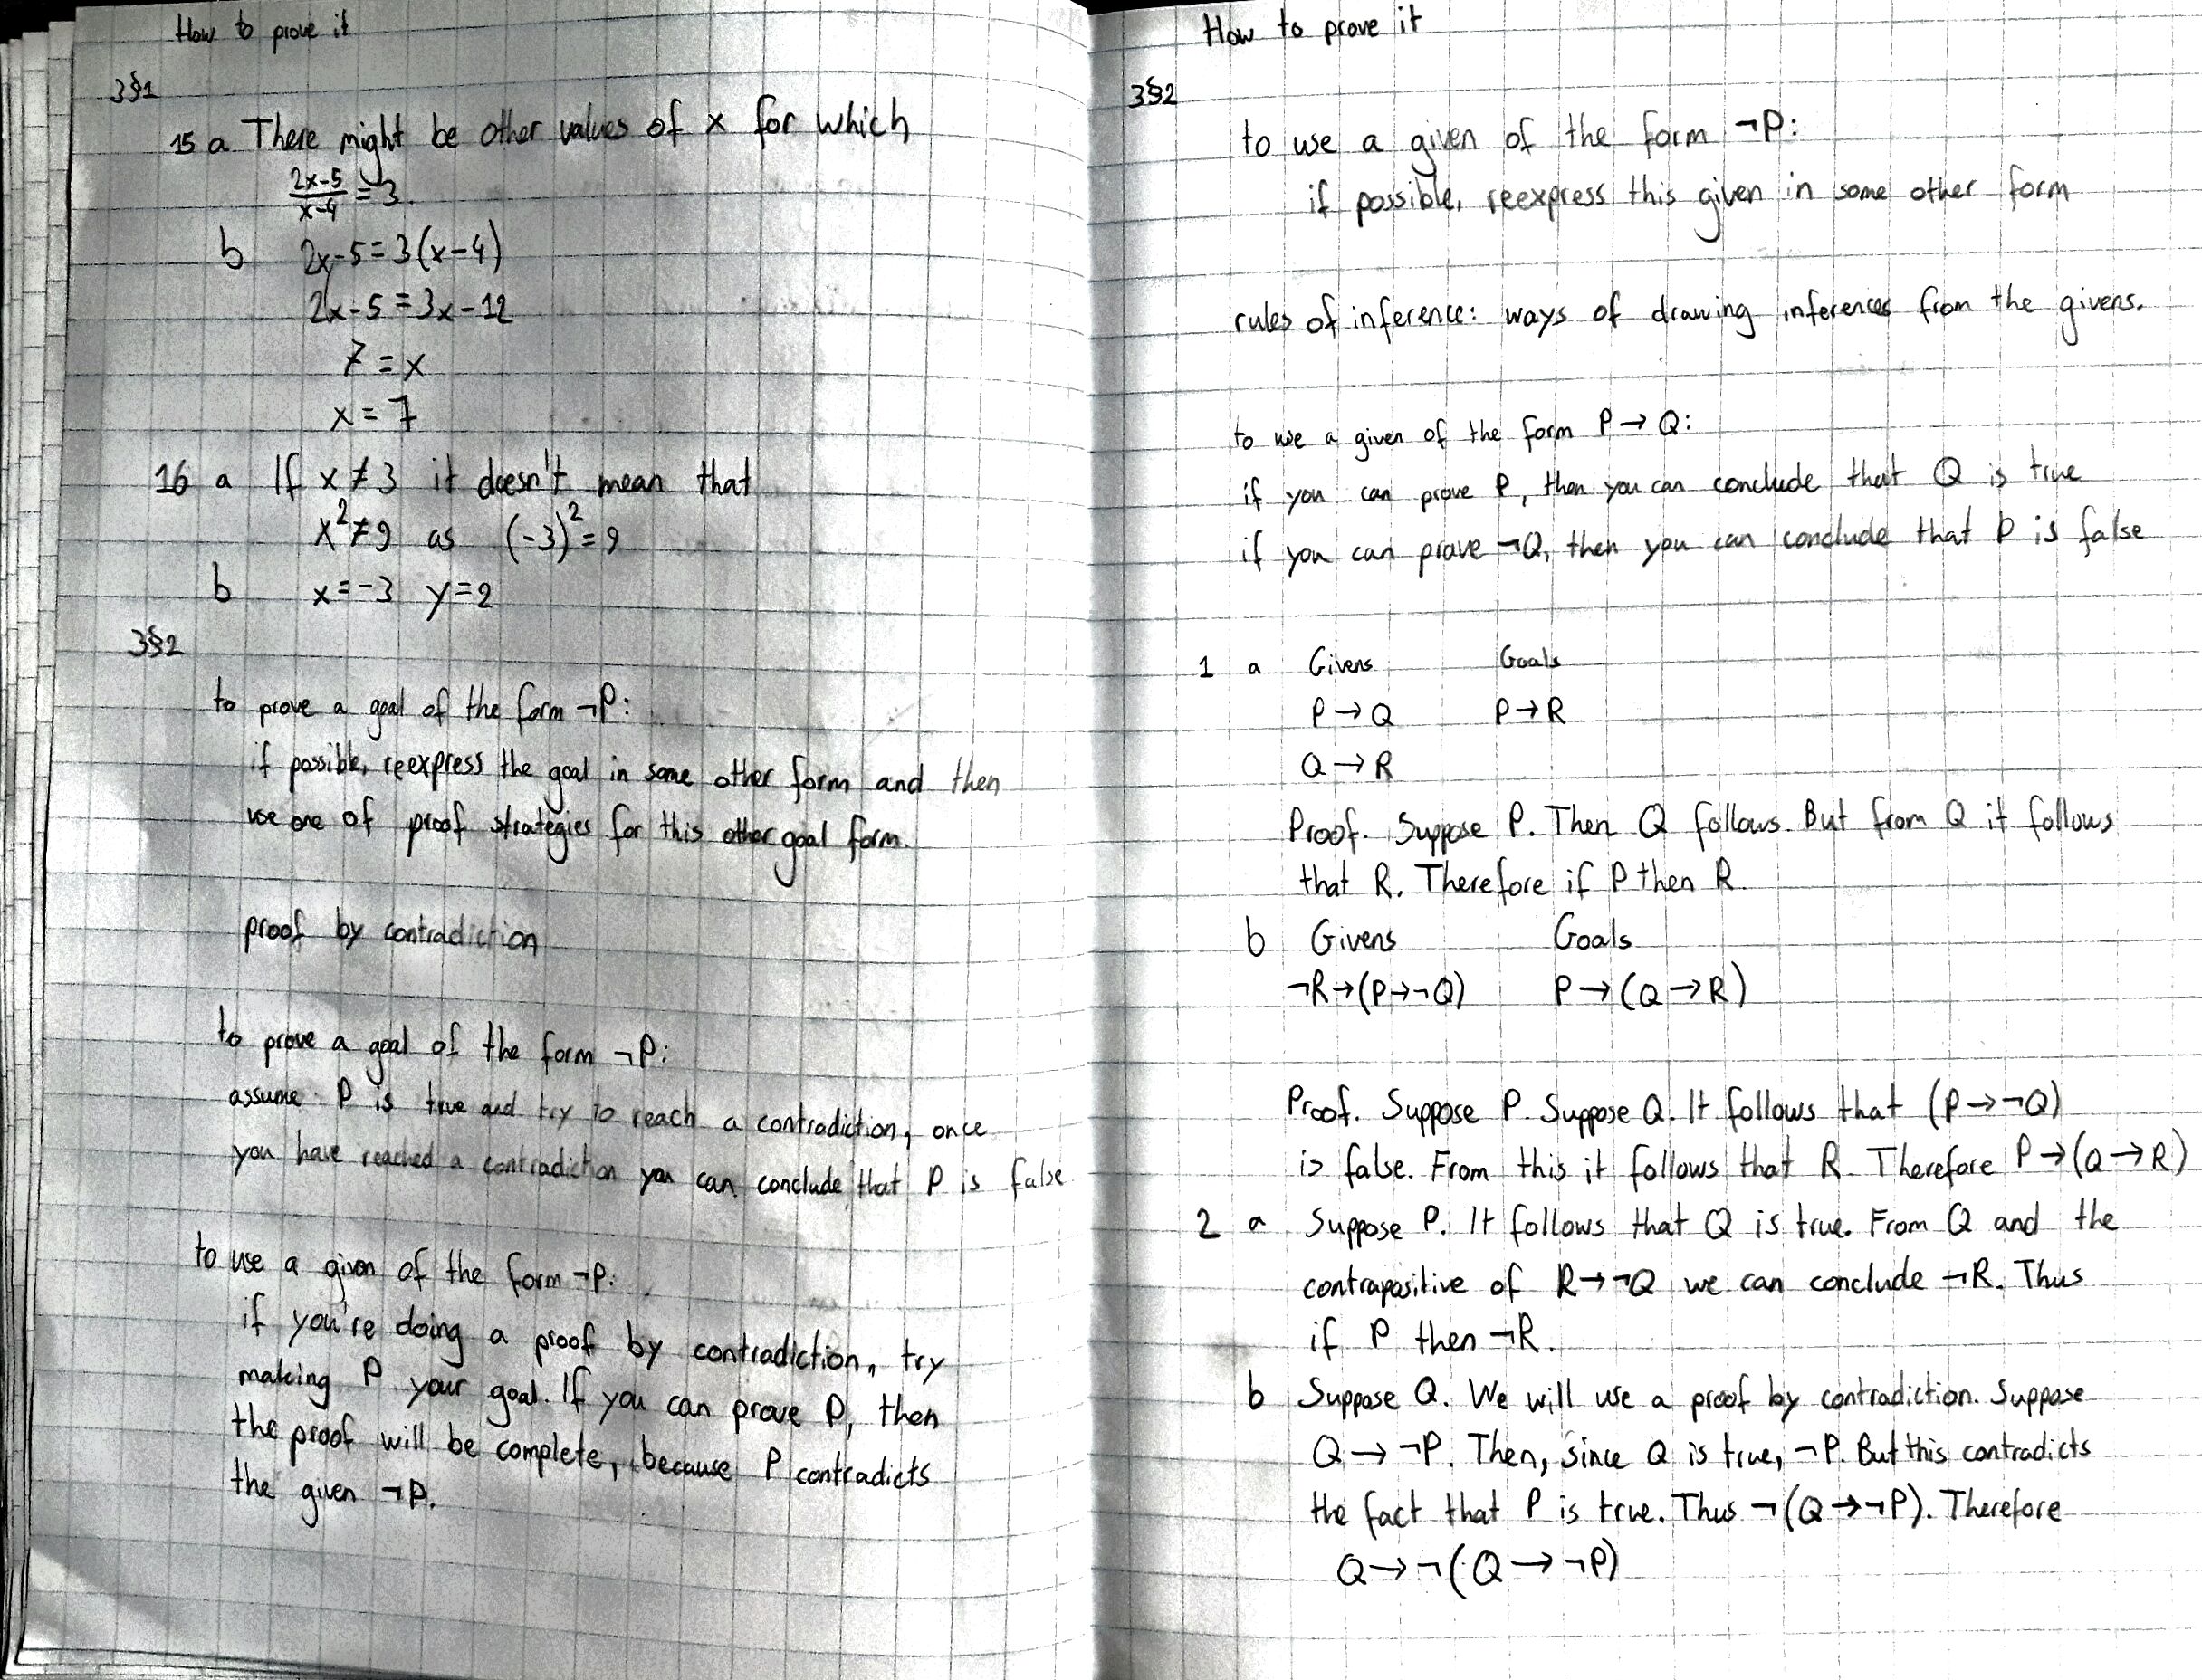 How to prove it
3§1
15 a There might be other values of x for which
(2x-5)/(x-4) = 3.
b 2x-5=3(x-4)
2x-5=3x-12
7=x
x=7
16 a If x≠3 it doesn't mean that
x²≠9 as (-3)²=9
b x=-3 y=2
3§2
to prove a goal of the form ¬P:
if possible, reexpress the goal in some other form and then
use one of proof strategies for this other goal form.
proof by contradiction
to prove a goal of the form ¬P:
assume P is true and try to reach a contradiction, once
you have reached a contradiction you can conclude that P is false
to use a given of the form ¬P:
if you're doing a proof by contradiction, try
making P your goal. If you can prove P, then
the proof will be complete, because P contradicts
the given ¬P.
How to prove it
3§2
to use a given of the form ¬P:
if possible, reexpress this given in some other form
rules of inference: ways of drawing inferences from the givens.
to use a given of the form P→Q:
if you can prove P, then you can conclude that Q is true
if you can prove ¬Q, then you can conclude that P is false
1 a Givens Goals
P→Q P→R
Q→R
Proof. Suppose P. Then Q follows. But from Q it follows
that R. Therefore if P then R.
b Givens Goals
¬R→(P→¬Q) P→(Q→R)
Proof. Suppose P. Suppose Q. It follows that (P→¬Q)
is false. From this it follows that R. Therefore P→(Q→R)
2 a Suppose P. It follows that Q is true. From Q and the
contrapositive of R→¬Q we can conclude ¬R. Thus
if P then ¬R.
b Suppose Q. We will use a proof by contradiction. Suppose
Q→¬P. Then, since Q is true, ¬P. But this contradicts
the fact that P is true. Thus ¬(Q→¬P). Therefore
Q→¬(Q→¬P)